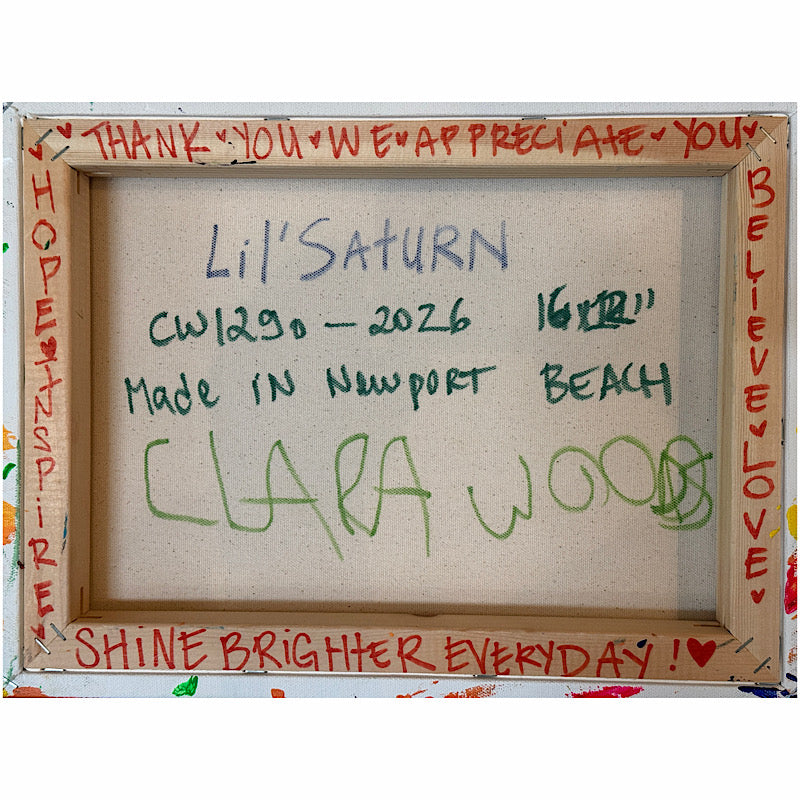 THANK ♥ YOU ♥ WE ♥ APPRECIATE ♥ YOU ♥
HOPE ♥ INSPIRE ♥
BELIEVE ♥ LOVE ♥
Lil' SATURN
CW1290 – 2026 16x12"
Made IN Newport BEACH
CLARA WOODS
SHINE BRIGHTER EVERYDAY ! ♥